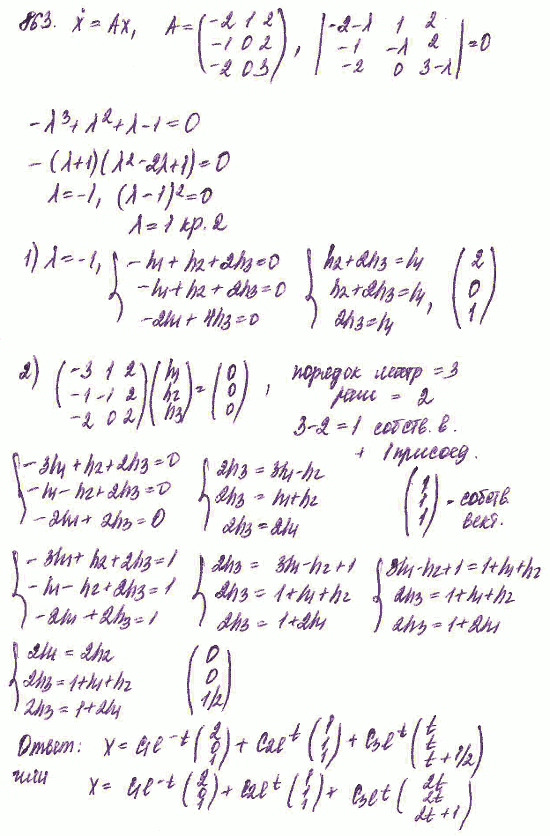 863. ẋ = Ax, A = (-2 1 2; -1 0 2; -2 0 3), |-2-λ 1 2; -1 -λ 2; -2 0 3-λ| = 0
-λ³+λ²+λ-1=0
-(λ+1)(λ²-2λ+1)=0
λ=-1, (λ-1)²=0
λ=1 кр. 2
1) λ=-1, { -h₁+h₂+2h₃=0; -h₁+h₂+2h₃=0; -2h₁+4h₃=0 { h₂+2h₃=h₁; h₂+2h₃=h₁; 2h₃=h₁, (2; 0; 1)
2) (-3 1 2; -1 -1 2; -2 0 2)(h₁; h₂; h₃) = (0; 0; 0), порядок матр = 3
ранг = 2
3-2=1 собств. в.
+ 1 присоед.
{ -3h₁+h₂+2h₃=0; -h₁-h₂+2h₃=0; -2h₁+2h₃=0 { 2h₃=3h₁-h₂; 2h₃=h₁+h₂; 2h₃=2h₁ (1; 1; 1) - собств. вект.
{ -3h₁+h₂+2h₃=1; -h₁-h₂+2h₃=1; -2h₁+2h₃=1 { 2h₃=3h₁-h₂+1; 2h₃=1+h₁+h₂; 2h₃=1+2h₁ { 3h₁-h₂+1=1+h₁+h₂; 2h₃=1+h₁+h₂; 2h₃=1+2h₁
{ 2h₁=2h₂; 2h₃=1+h₁+h₂; 2h₃=1+2h₁ (0; 0; 1/2)
Ответ: x = c₁e^-t (2; 0; 1) + c₂e^t (1; 1; 1) + c₃e^t (t; t; t+1/2)
или x = c₁e^-t (2; 0; 1) + c₂e^t (1; 1; 1) + c₃e^t (2t; 2t; 2t+1)